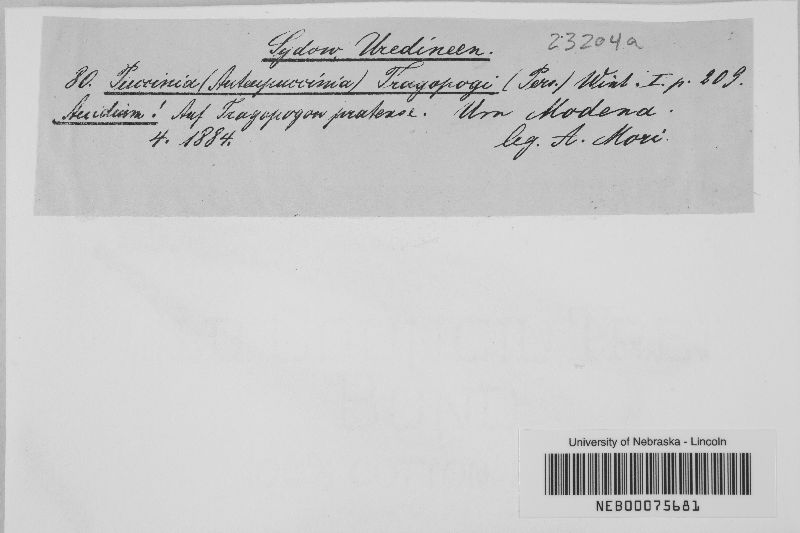 Sydow, Uredineen. 23204a
80. Puccinia (Auteupuccinia) Tragopogi (Pers.) Wint. I. p. 209.
Aecidium! Auf Tragopogon pratense. Um Modena.
4. 1884. leg. A. Mori.
University of Nebraska - Lincoln
NEB00075681